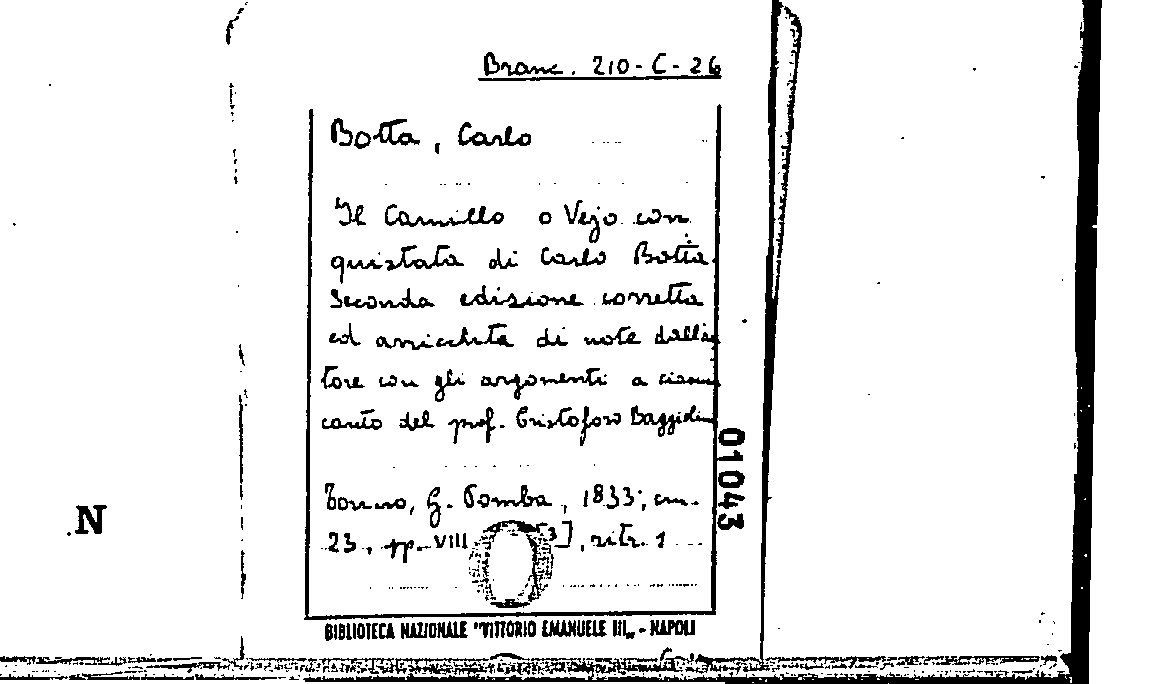 Branc. 210-C-26
Botta, Carlo
Il Camillo o Vejo con
quistata di Carlo Botta.
Seconda edizione corretta
ed arricchita di note dall'au
tore con gli argomenti a ciascun
canto del prof. Cristoforo
Torino, G. Pomba, 1833; cm.
23, pp. VIII [3], ritr. 1
01043
N
BIBLIOTECA NAZIONALE "VITTORIO EMANUELE III„ - NAPOLI